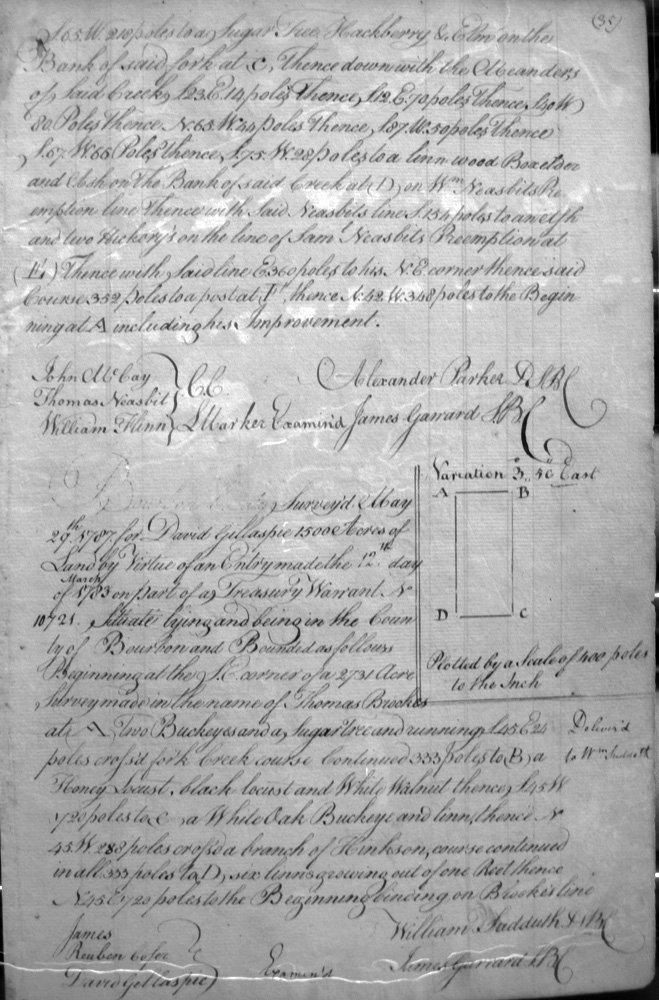 (35)
S. 65. W. 210 poles to a Sugar Tree Hackberry & Elm on the
Bank of said fork at C, Thence down with the Meanders
of said Creek, S 23. E. 14 poles thence, S 12. E. 70 poles thence, S 40 W
80. Poles thence N. 65. W. 44 poles Thence, S 87. W. 50 poles thence
S. 57. W. 66 Poles thence, S. 75. W. 28 poles to a linn wood Box elder
and Ash on the Bank of said Creek at (D) on Wm Neasbits Pre
emption line thence with said Neasbits line S. 154 poles to an Ash
and two Hickory's on the line of Sam Neasbits Preemption at
(E) Thence with said line E 360 poles to his N. E. corner thence said
Course 352 poles to a post at F, thence N. 42. W. 348 poles to the Begin
ning at A including his Improvement.
John McCay
Thomas Neasbit } C. C.
William Flinn } Marker
Alexander Parker D. S. B C
Examin'd James Garrard S. B C
Variation 3° 40 East
A B
D C
Plotted by a Scale of 400 poles
to the Inch
Survey'd May
29th 1787. for David Gillaspie 1500 Acres of
Land by Virtue of an Entry made the 12th day
of March 1783 on part of a Treasury Warrant No
10721. Situate lying and being in the Coun
ty of Bourbon and Bounded as follows
Beginning at the S. E. corner of a 2731 Acre
Survey made in the name of Thomas Brookes
at A Two Buckeyes and a Sugar tree and running S. 45 E 24
poles cross'd fork Creek course Continued 333 poles to (B) a
Honey Locust, black locust and White Walnut thence S 45 W
720 poles to C a White Oak Buckeye and linn, thence N
45. W. 288 poles cross'd a branch of Hinkson, course continued
in all 333 poles to D, six linns growing out of one Root thence
N. 45 E 720 poles to the Beginning binding on Brookes line
Deliver'd
to Wm Sudduth
James
Reuben Cofer
David Gillaspie
William Sudduth D. S. B C
Examin'd James Garrard S. B C